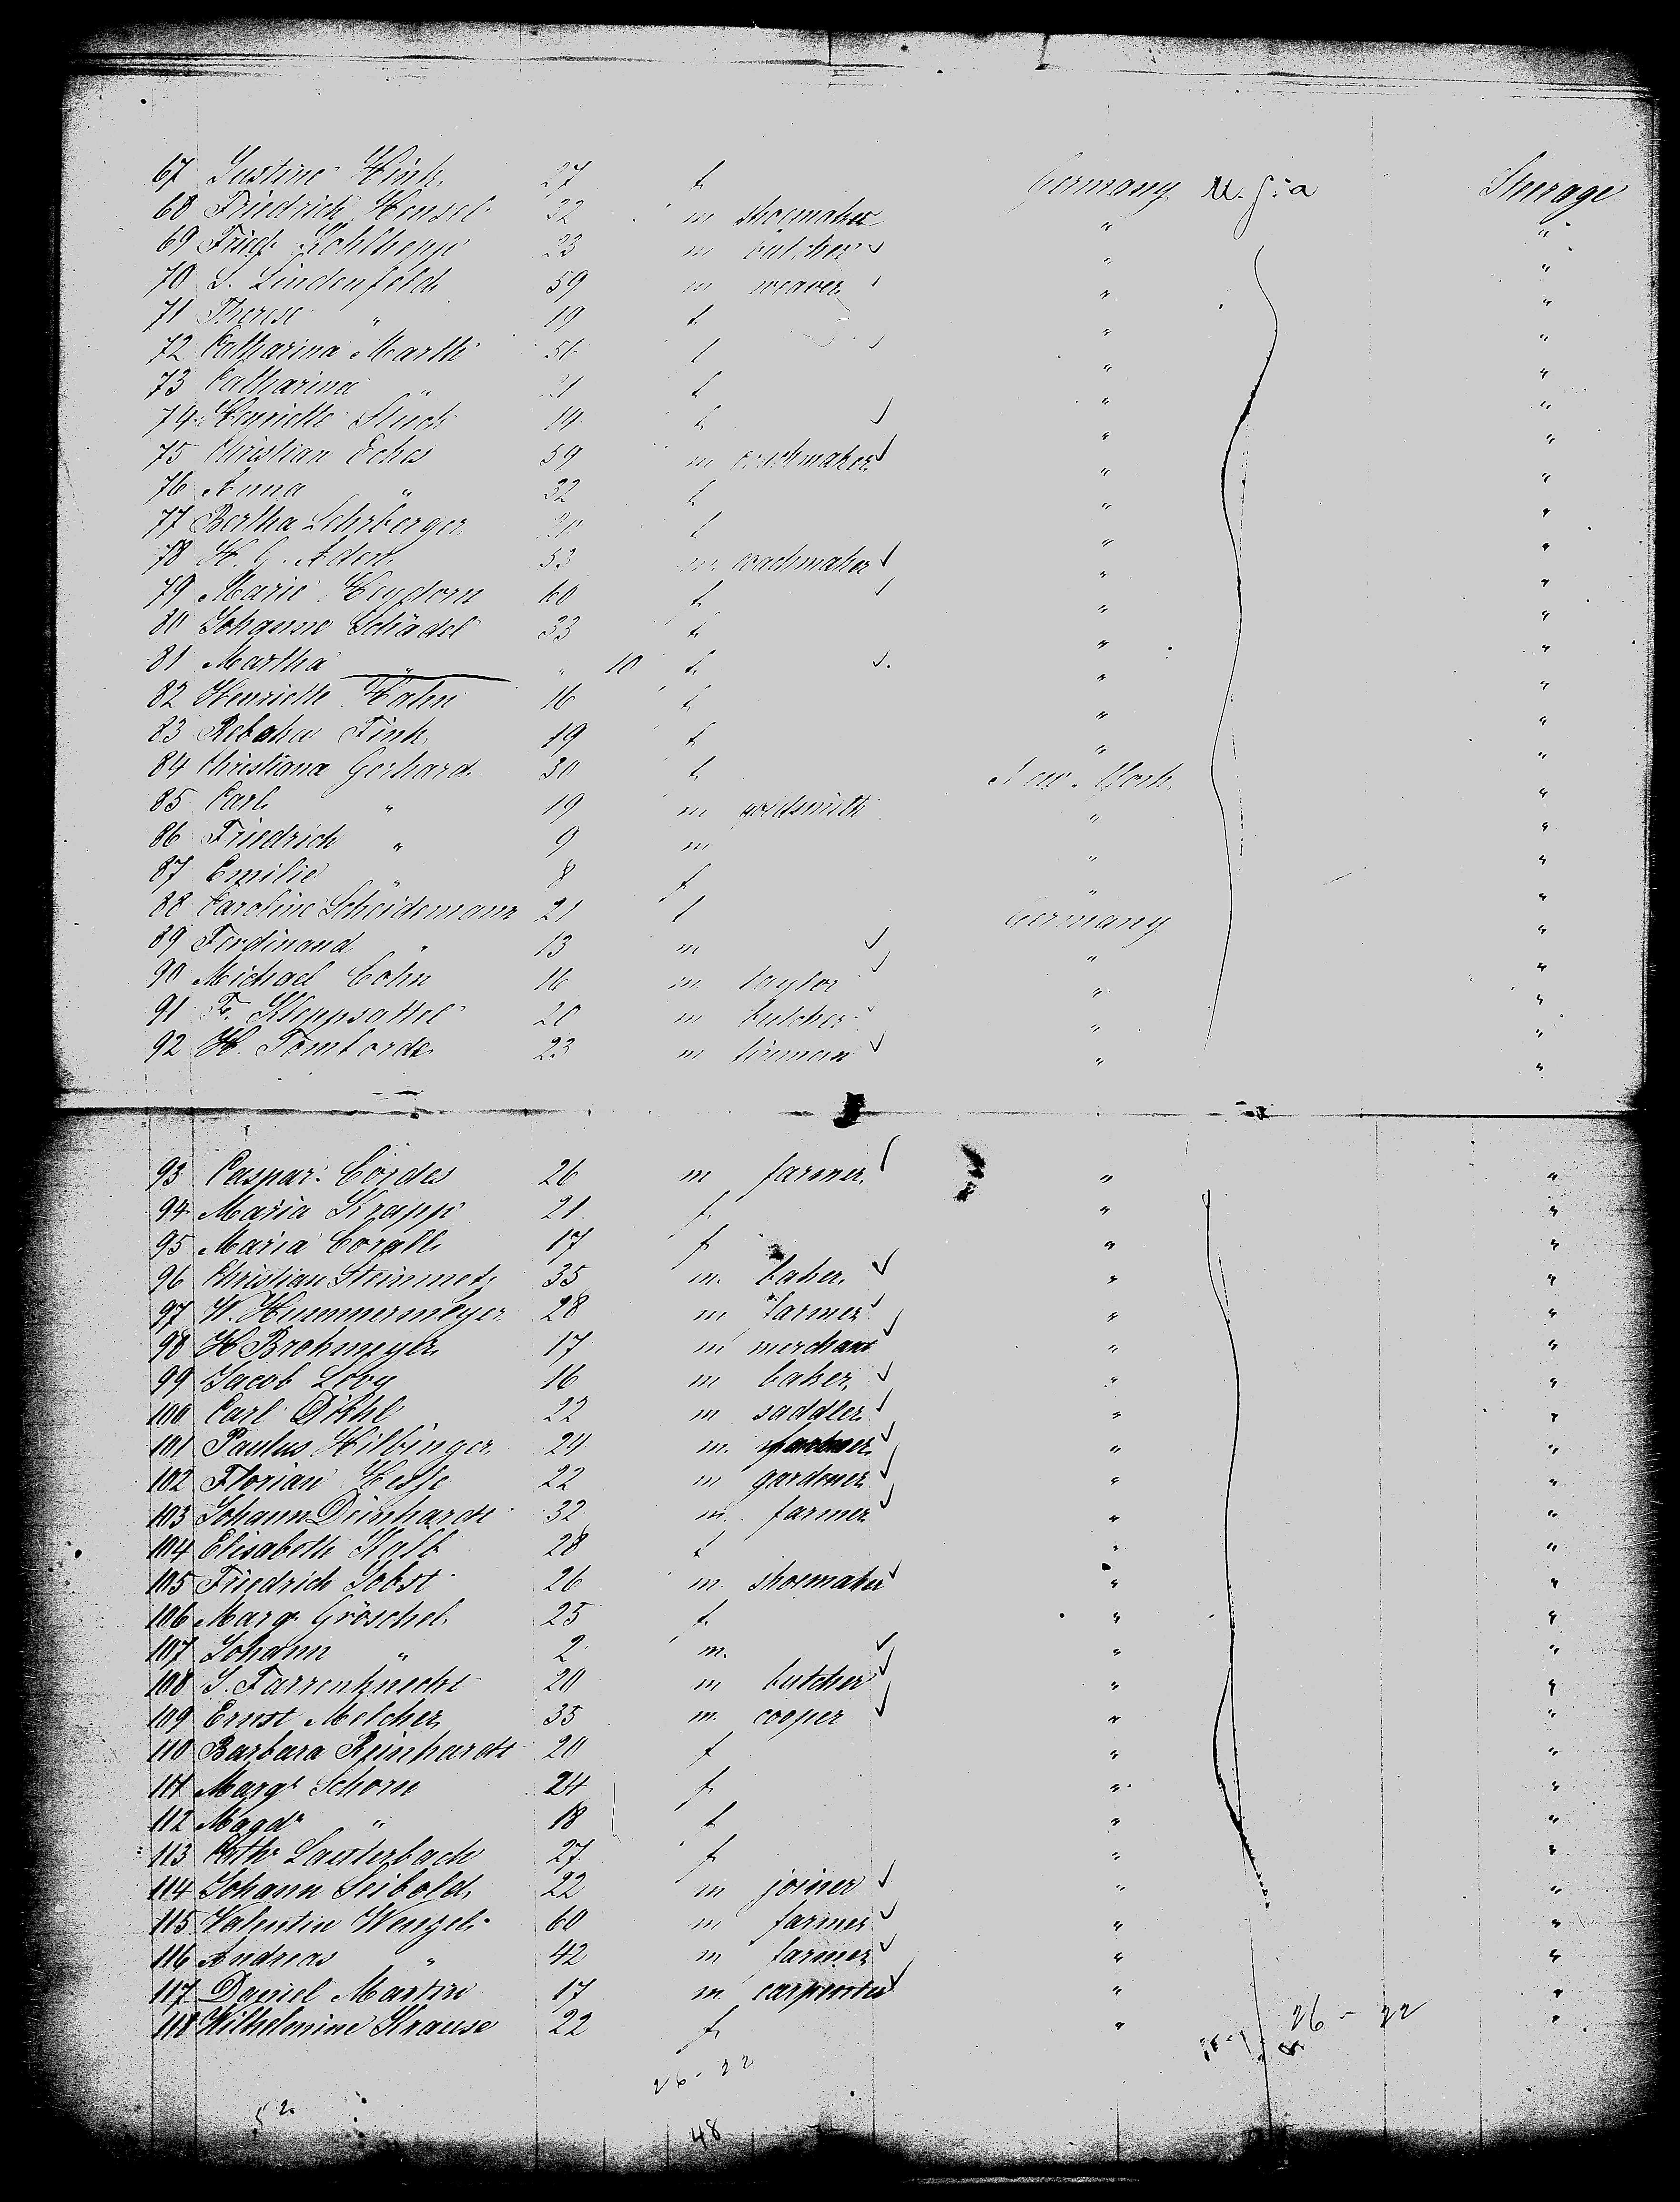 67 Justine Hink 27 f Germany U.S.a Steerage
68 Friedrich Hensel 32 m shoemaker " "
69 Friedr Kohlhepp 23 m butcher " "
70 S. Lindenfeld 59 m weaver " "
71 Therese " 19 f " "
72 Catharina Marth 56 f " "
73 Catharina " 21 f " "
74 Henriette Stuck 14 f " "
75 Christian Eches 59 m coachmaker " "
76 Anna " 32 f " "
77 Bertha Lehrberger 20 f " "
78 H. G. Aden 53 m coachmaker " "
79 Marie Heydorn 60 f " "
80 Johanne Schädel 33 f " "
81 Martha " " 10 f " "
82 Henriette Hahn 16 f " "
83 Rebekka Fink 19 f " "
84 Christiana Gerhard 30 f New-York "
85 Carl " 19 m goldsmith " "
86 Friedrich " 9 m " "
87 Emilie " 8 f " "
88 Caroline Scheidemann 21 f Germany "
89 Ferdinand " 13 m " "
90 Michael Cohn 16 m taylor " "
91 Fr. Kleppsattel 20 m butcher " "
92 H. Tomforde 23 m fireman " "
93 Caspar Cordes 26 m farmer " "
94 Maria Krapp 21 f " "
95 Maria Corell 17 f " "
96 Christian Steinmetz 35 m baker " "
97 W. Hummermeyer 28 m farmer " "
98 H Brokmeyer 17 m merchant " "
99 Jacob Levy 16 m baker " "
100 Carl Dihl 22 m saddler " "
101 Paulus Hilbinger 24 m farmer " "
102 Florian Hesse 22 m gardener " "
103 Johann Deinhardt 32 m farmer " "
104 Elisabeth Kalb 28 f " "
105 Friedrich Jobst 26 m shoemaker " "
106 Marg. Gröschel 25 f " "
107 Johann " 2 m " "
108 J. Farrenknecht 20 m butcher " "
109 Ernst Melcher 35 m cooper " "
110 Barbara Reinhardt 20 f " "
111 Margr Schorn 24 f " "
112 Magdr " 18 f " "
113 Cathr Lauterbach 27 f " "
114 Johann Seibold 22 m joiner " "
115 Valentin Wenzel 60 m farmer " "
116 Andreas " 42 m farmer " "
117 Daniel Martin 17 m carpenter " "
118 Wilhelmine Krause 22 f " "
26 - 22
26 - 22
52
48